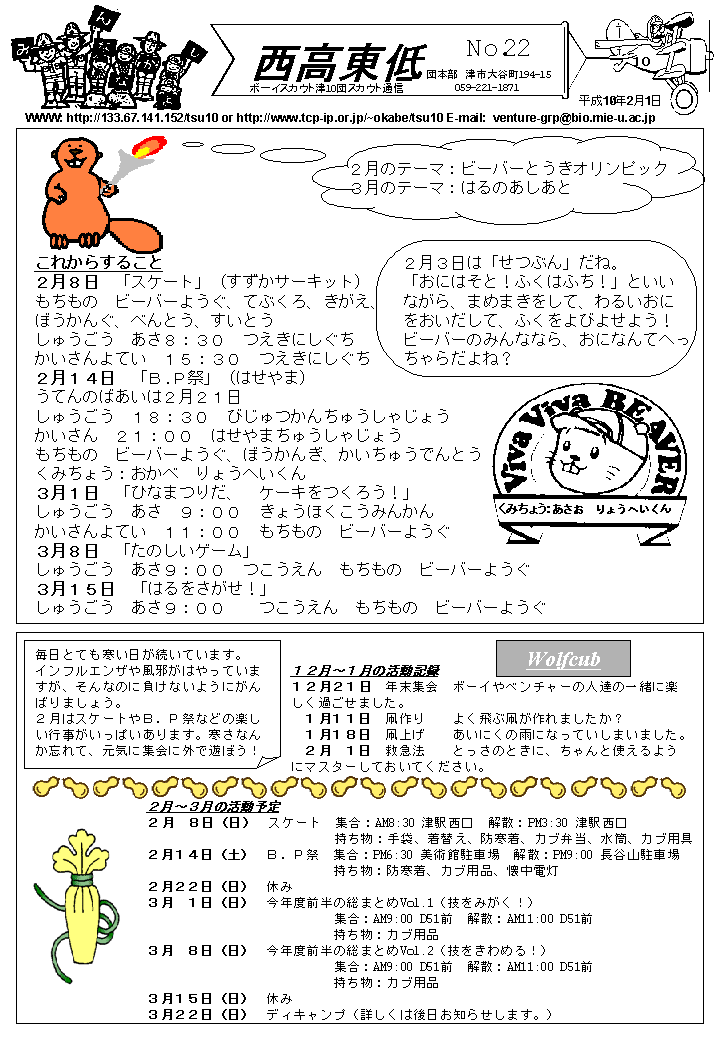 みんしん
西高東低
No.22
団本部 津市大谷町194-15
ボーイスカウト津10団スカウト通信 059-221-1871
10
平成10年2月1日
WWW: http://133.67.141.152/tsu10 or http://www.tcp-ip.or.jp/~okabe/tsu10 E-mail: venture-grp@bio.mie-u.ac.jp
２月のテーマ：ビーバーとうきオリンピック
３月のテーマ：はるのあしあと
これからすること
２月８日 「スケート」（すずかサーキット）
もちもの ビーバーようぐ、てぶくろ、きがえ、
ぼうかんぐ、べんとう、すいとう
しゅうごう あさ８：３０ つえきにしぐち
かいさんよてい １５：３０ つえきにしぐち
２月１４日 「Ｂ.Ｐ祭」（はせやま）
うてんのばあいは２月２１日
しゅうごう １８：３０ びじゅつかんちゅうしゃじょう
かいさん ２１：００ はせやまちゅうしゃじょう
もちもの ビーバーようぐ、ぼうかんぎ、かいちゅうでんとう
くみちょう：おかべ りょうへいくん
３月１日 「ひなまつりだ、 ケーキをつくろう！」
しゅうごう あさ ９：００ きょうほくこうみんかん
かいさんよてい １１：００ もちもの ビーバーようぐ
３月８日 「たのしいゲーム」
しゅうごう あさ９：００ つこうえん もちもの ビーバーようぐ
３月１５日 「はるをさがせ！」
しゅうごう あさ９：００ つこうえん もちもの ビーバーようぐ
２月３日は「せつぶん」だね。
「おにはそと！ふくはふち！」といい
ながら、まめまきをして、わるいおに
をおいだして、ふくをよびよせよう！
ビーバーのみんななら、おになんてへっ
ちゃらだよね？
Viva Viva BEAVER
くみちょう：あさお りょうへいくん
毎日とても寒い日が続いています。
インフルエンザや風邪がはやっていま
すが、そんなのに負けないようにがん
ばりましょう。
２月はスケートやＢ．Ｐ祭などの楽し
い行事がいっぱいあります。寒さなん
か忘れて、元気に集会に外で遊ぼう！
Wolfcub
１２月～１月の活動記録
１２月２１日 年末集会 ボーイやベンチャーの人達の一緒に楽
しく過ごせました。
１月１１日 凧作り よく飛ぶ凧が作れましたか？
１月１８日 凧上げ あいにくの雨になっていしまいました。
２月 １日 救急法 とっさのときに、ちゃんと使えるよう
にマスターしておいてください。
２月～３月の活動予定
２月 ８日（日） スケート 集合：AM8:30 津駅西口 解散：PM3:30 津駅西口
持ち物：手袋、着替え、防寒着、カブ弁当、水筒、カブ用具
２月１４日（土） Ｂ．Ｐ祭 集合：PM6:30 美術館駐車場 解散：PM9:00 長谷山駐車場
持ち物：防寒着、カブ用品、懐中電灯
２月２２日（日） 休み
３月 １日（日） 今年度前半の総まとめVol.1（技をみがく！）
集合：AM9:00 D51前 解散：AM11:00 D51前
持ち物：カブ用品
３月 ８日（日） 今年度前半の総まとめVol.2（技をきわめる！）
集合：AM9:00 D51前 解散：AM11:00 D51前
持ち物：カブ用品
３月１５日（日） 休み
３月２２日（日） ディキャンプ（詳しくは後日お知らせします。）